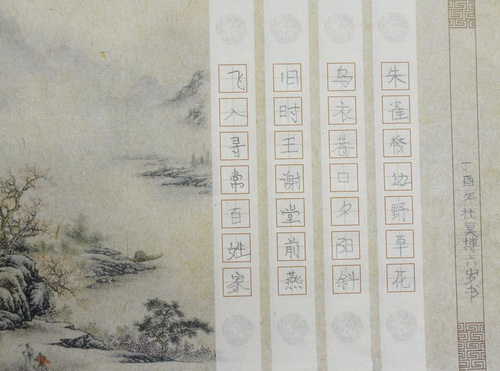 朱雀桥边野草花
乌衣巷口夕阳斜
旧时王谢堂前燕
飞入寻常百姓家
丁酉年杜昊六岁书